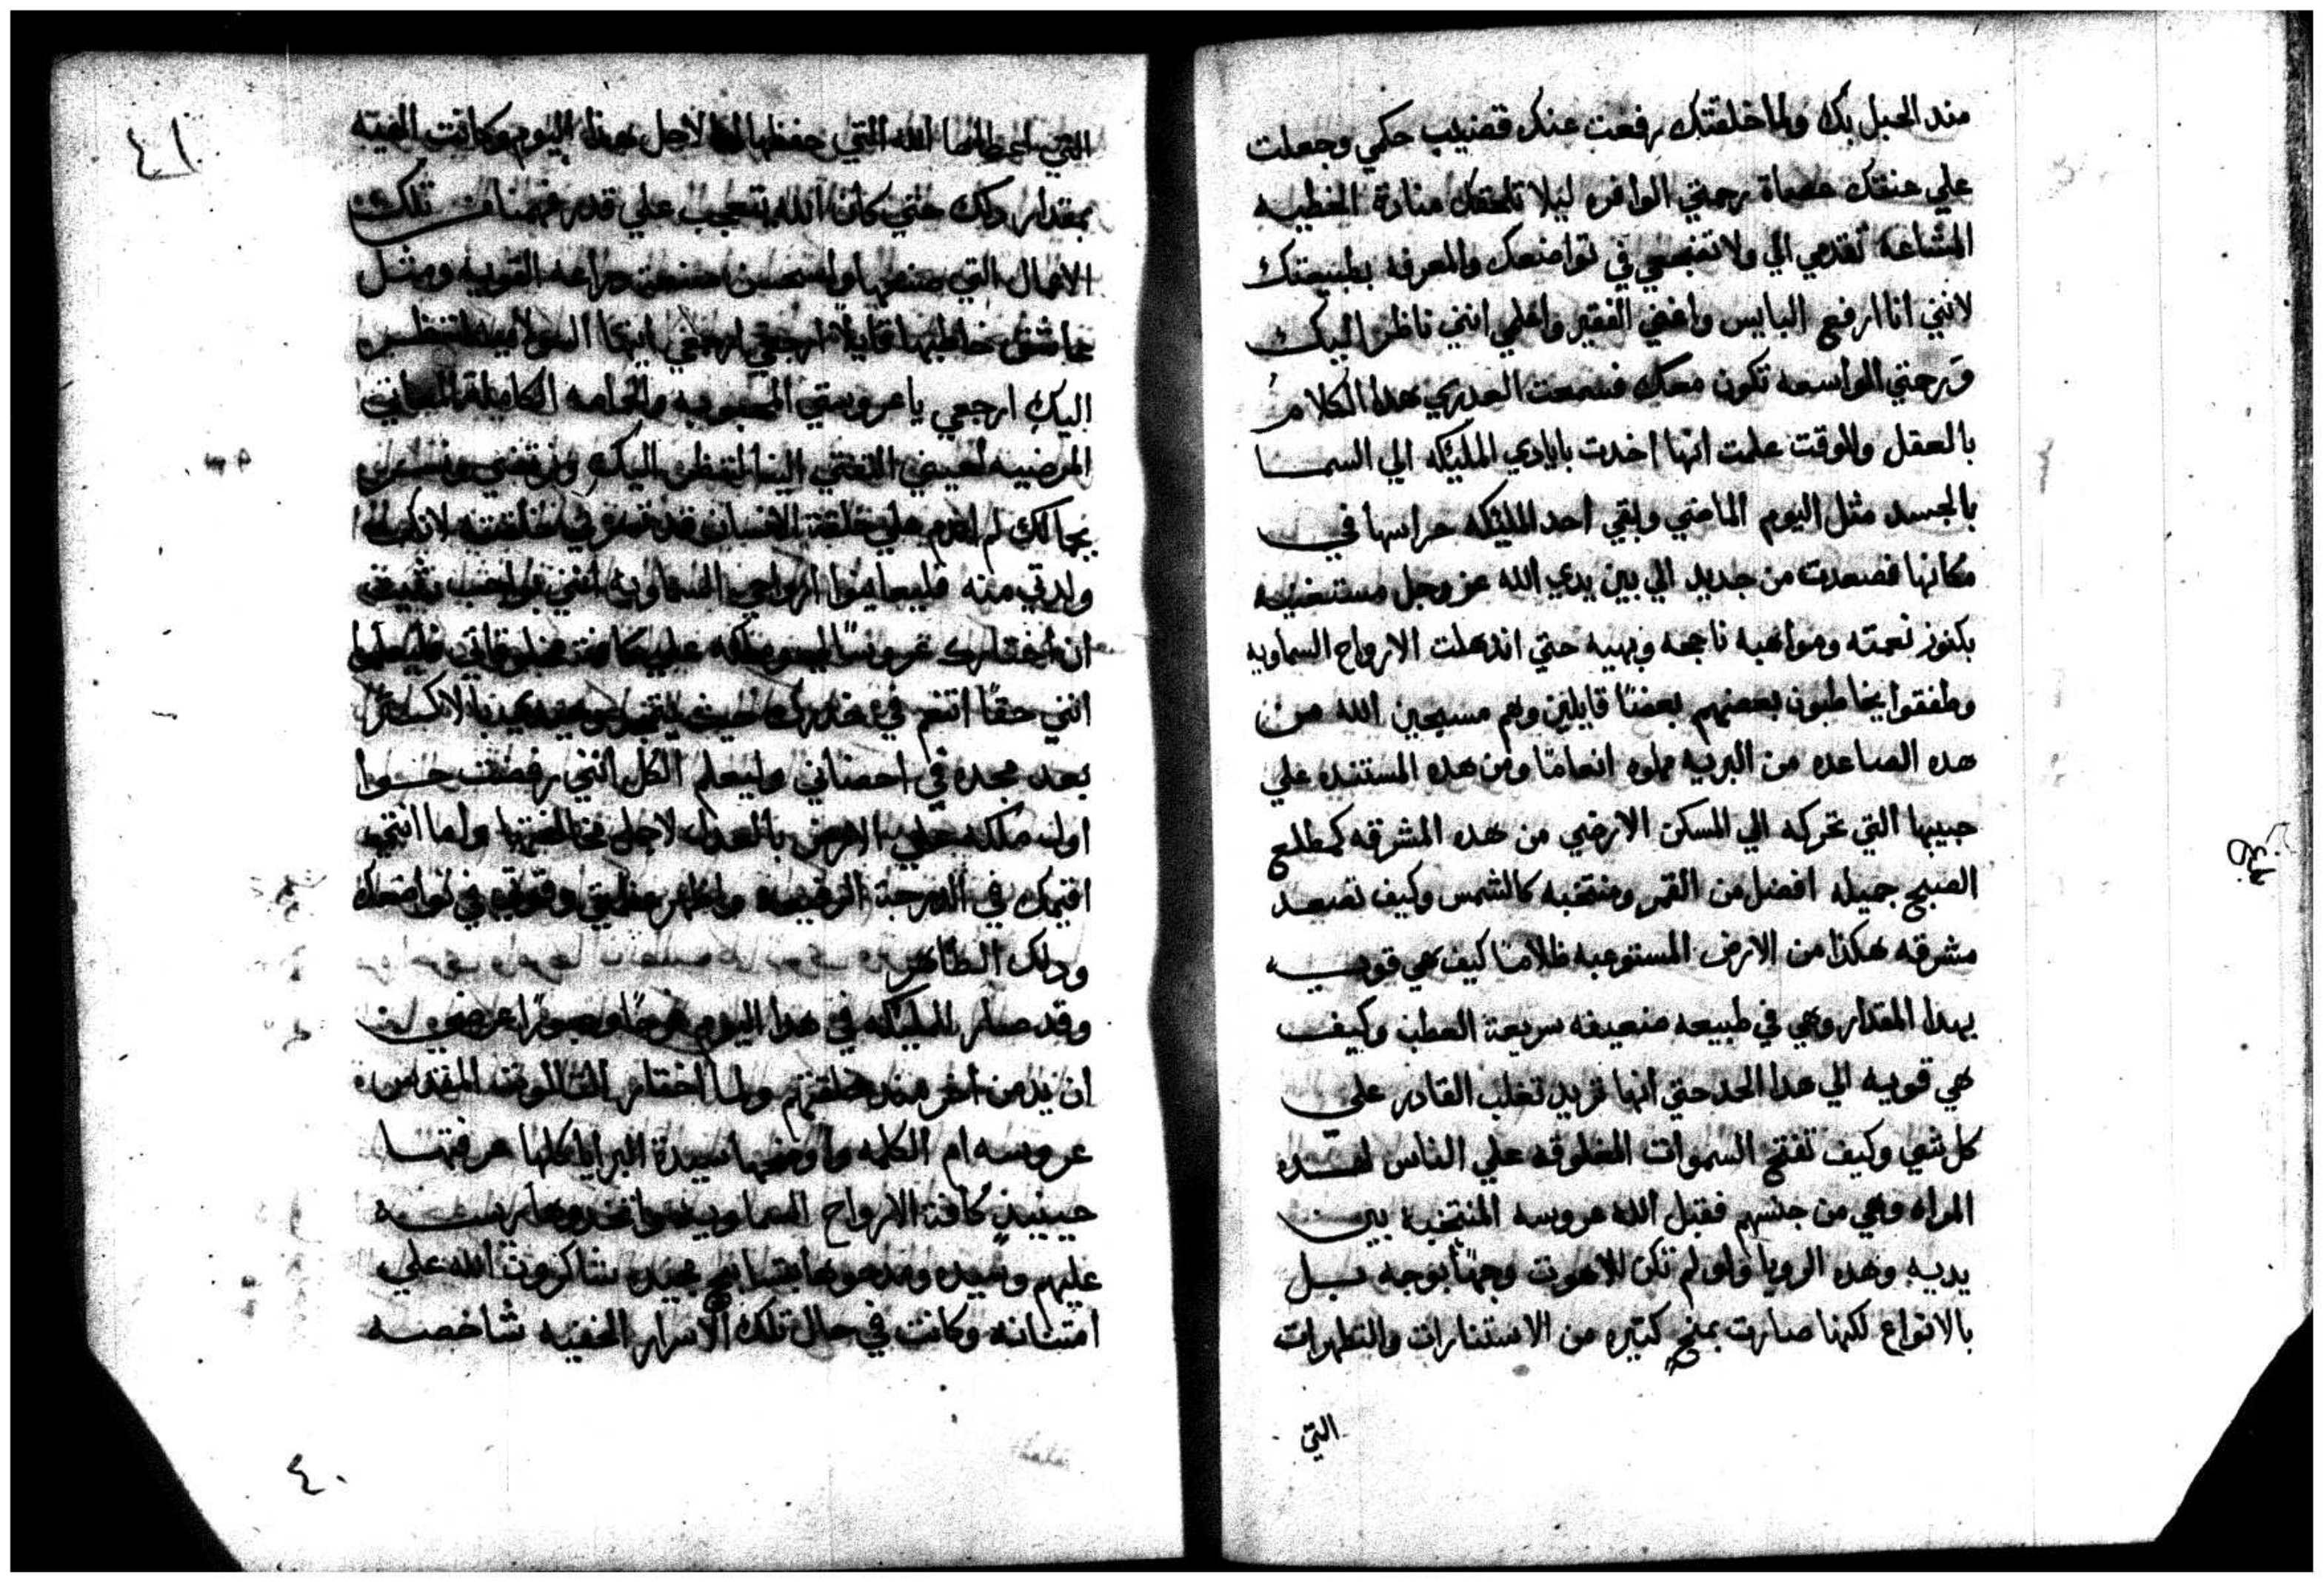 مند الحبل بك ولما خلقتك رفعت عنك قضيب حكمي وجعلت
علي عنقك عصاة رحمتي الوافره ليلا تلحقك منادة الخطيه
المشاعه تقدمي الي ولا تفجعي في تواضعك والمعرفه بطبيعتك
لانني انا ارفع البايس واغني الفقير واعلمي انني ناظر اليك
ورحمتي الواسعه تكون معك فسمعت العدري هدا الكلام
بالعقل والوقت علمت انها اخدت بايادي المليكه الي السما
بالجسد مثل اليوم الماضي وبقي احد المليكه حراسها في
مكانها فصعدت من جديد الي بين يدي الله عز وجل مستغنيه
بكنوز نعمته ومواهبه ناجحه وبهيه حتي اندهلت الارواح السماويه
وطفقوا يخاطبون بعضهم بعضًا قايلين وهم مسبحين الله من
هده الصاعده من البريه مملوه انعامًا ومن هده المستنده علي
حبيبها التي تحركه الي المسكن الارضي من هده المشرقه كمطلع
الصبح جميله افضل من القمر ومنتخبه كالشمس وكيف تصعد
مشرقه هكذا من الارض المستوعبه ظلامًا كيف هي قويه
بهدا المقدار وهي في طبيعه ضعيفه سريعة العطب وكيف
هي قويه الي هدا الحد حتي انها تريد تغلب القادر علي
كل شي وكيف تفتح السموات المغلوقه علي الناس لهده
المراه وهي من جنسهم فقبل الله عروسه المنتخبه بين
يديه وهده الرويا ولو لم تكن للاهوت وجهًا بوجه بل
بالانواع لكنها صارت بمنح كتيره من الاستنارات والتطهيرات
التي
٤١
التي اعطاها الله التي حفظها لاجل هدا اليوم وكانت الهيته
بمقدار دلك حتي كان الله تعجب علي قدر فهمنا من تلك
الافعال التي صنعها واستحسن صنعة دراعه القويه ومثل
عاشق خاطبها قايلاً ارجعي ارجعي ايتها السولاميه لننظر
اليك ارجعي يا عروستي المحبوبه والحمامه الكامله
المرضيه لعيني التفتي الينا لننظر اليك
بجمالك لم اندم علي خلقة الانسان
ولدتي منه فليعلموا ارواحي السماوين انني بواجب
ان اختارك عروسًا لي وملكه علي كافة مخلوقاتي فليعلموا
انني حقًا اتنعم في خدرك حيث
بعد مجده في احضاني وليعلم الكل انني رفضت حوا
اول ملكه علي الارض بالعدل لاجل مخالفتها واما انتي
اقيمك في الدرجة الرفيعه واظهر عظمتي وقوتي في تواضعك
ودلك الطاهر
وقد صار للمليكه في هدا اليوم فرحًا
ان يد من اخر مند خلقتهم ولما اختار التالوت المقدس
عروسه ام الكلمه واوضحها سيدة البرايا كلها عرفتها
حينيد كافة الارواح السماويه
عليهم وسيده ومدحوها بتسابيح مجيده شاكرون الله علي
امتنانه وكانت في حال تلك الاسرار الخفيه شاخصه
٤٠